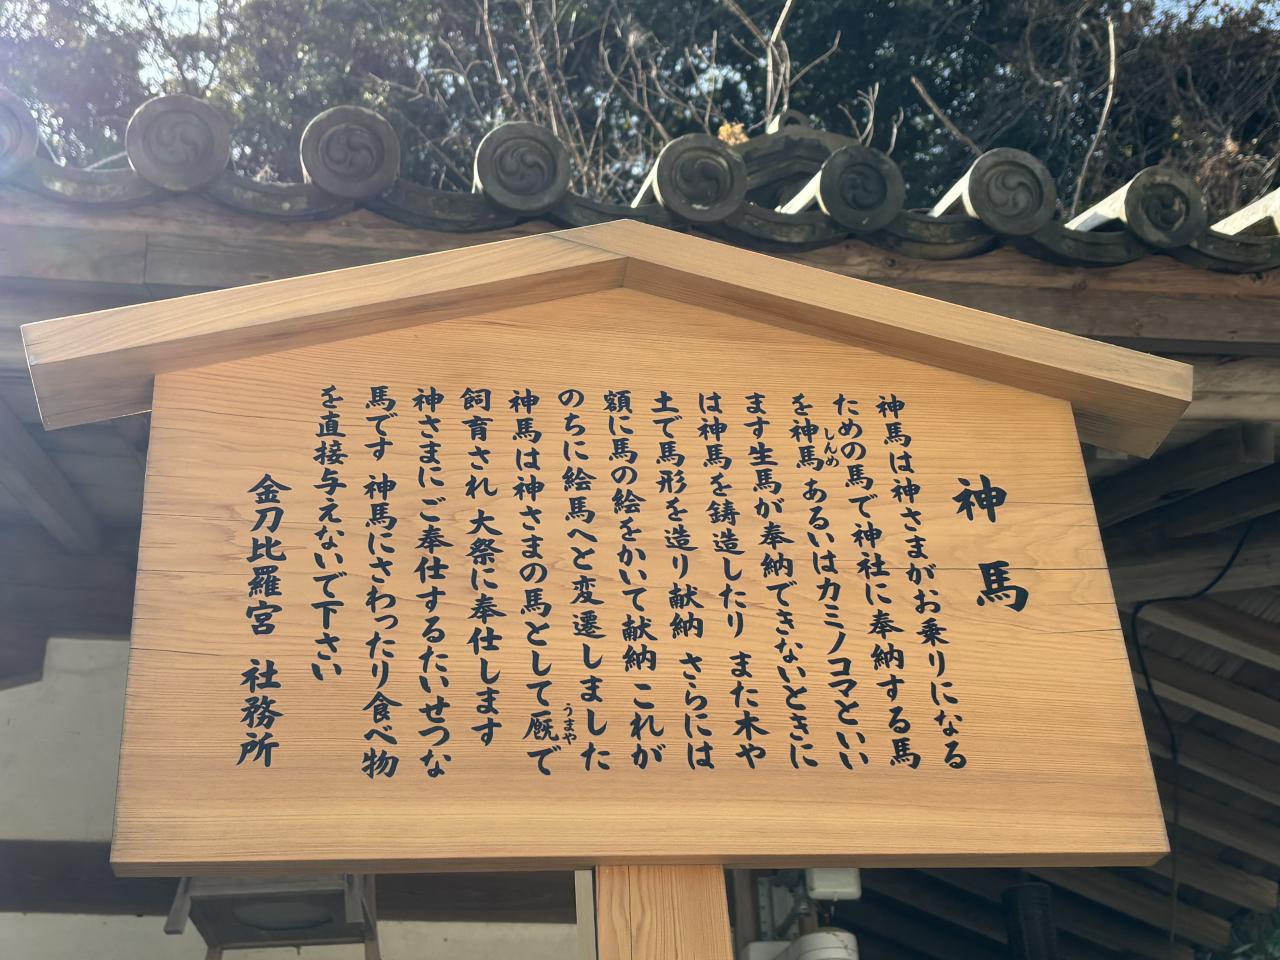 神馬
神馬は神さまがお乗りになる
ための馬で神社に奉納する馬
を神馬あるいはカミノコマといい
しんめ
ます生馬が奉納できないときに
は神馬を鋳造したり また木や
土で馬形を造り献納 さらには
額に馬の絵をかいて献納 これが
のちに絵馬へと変遷しました
神馬は神さまの馬として厩で
うまや
飼育され 大祭に奉仕します
神さまにご奉仕するたいせつな
馬です 神馬にさわったり食べ物
を直接与えないで下さい
金刀比羅宮 社務所